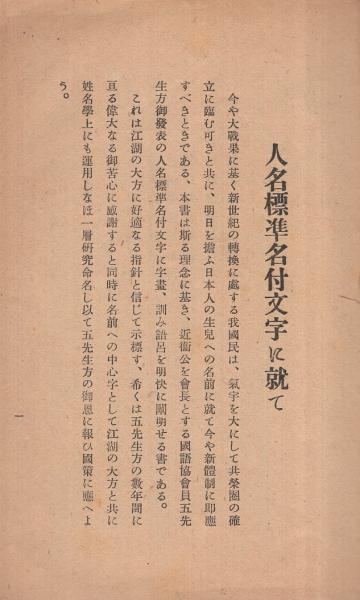 人名標準名付文字に就て
今や大戰果に基く新世紀の轉換に處する我國民は、氣宇を大にして共榮圈の確
立に臨む可きと共に、明日を擔ふ日本人の生兒への名前に就て今や新體制に即應
すべきときである、本書は斯る理念に基き、近衞公を會長とする國語協會員五先
生方御發表の人名標準名付文字に字畫、訓み語呂を明快に闡明せる書である。
これは江湖の大方に好適なる指針と信じて示標す、希くは五先生方の數年間に
亘る偉大なる御苦心に感謝すると同時に名前への中心字として江湖の大方と共に
姓名學上にも運用しなほ一層硏究命名し以て五先生方の御恩に報ひ國策に應へよ
う。
一